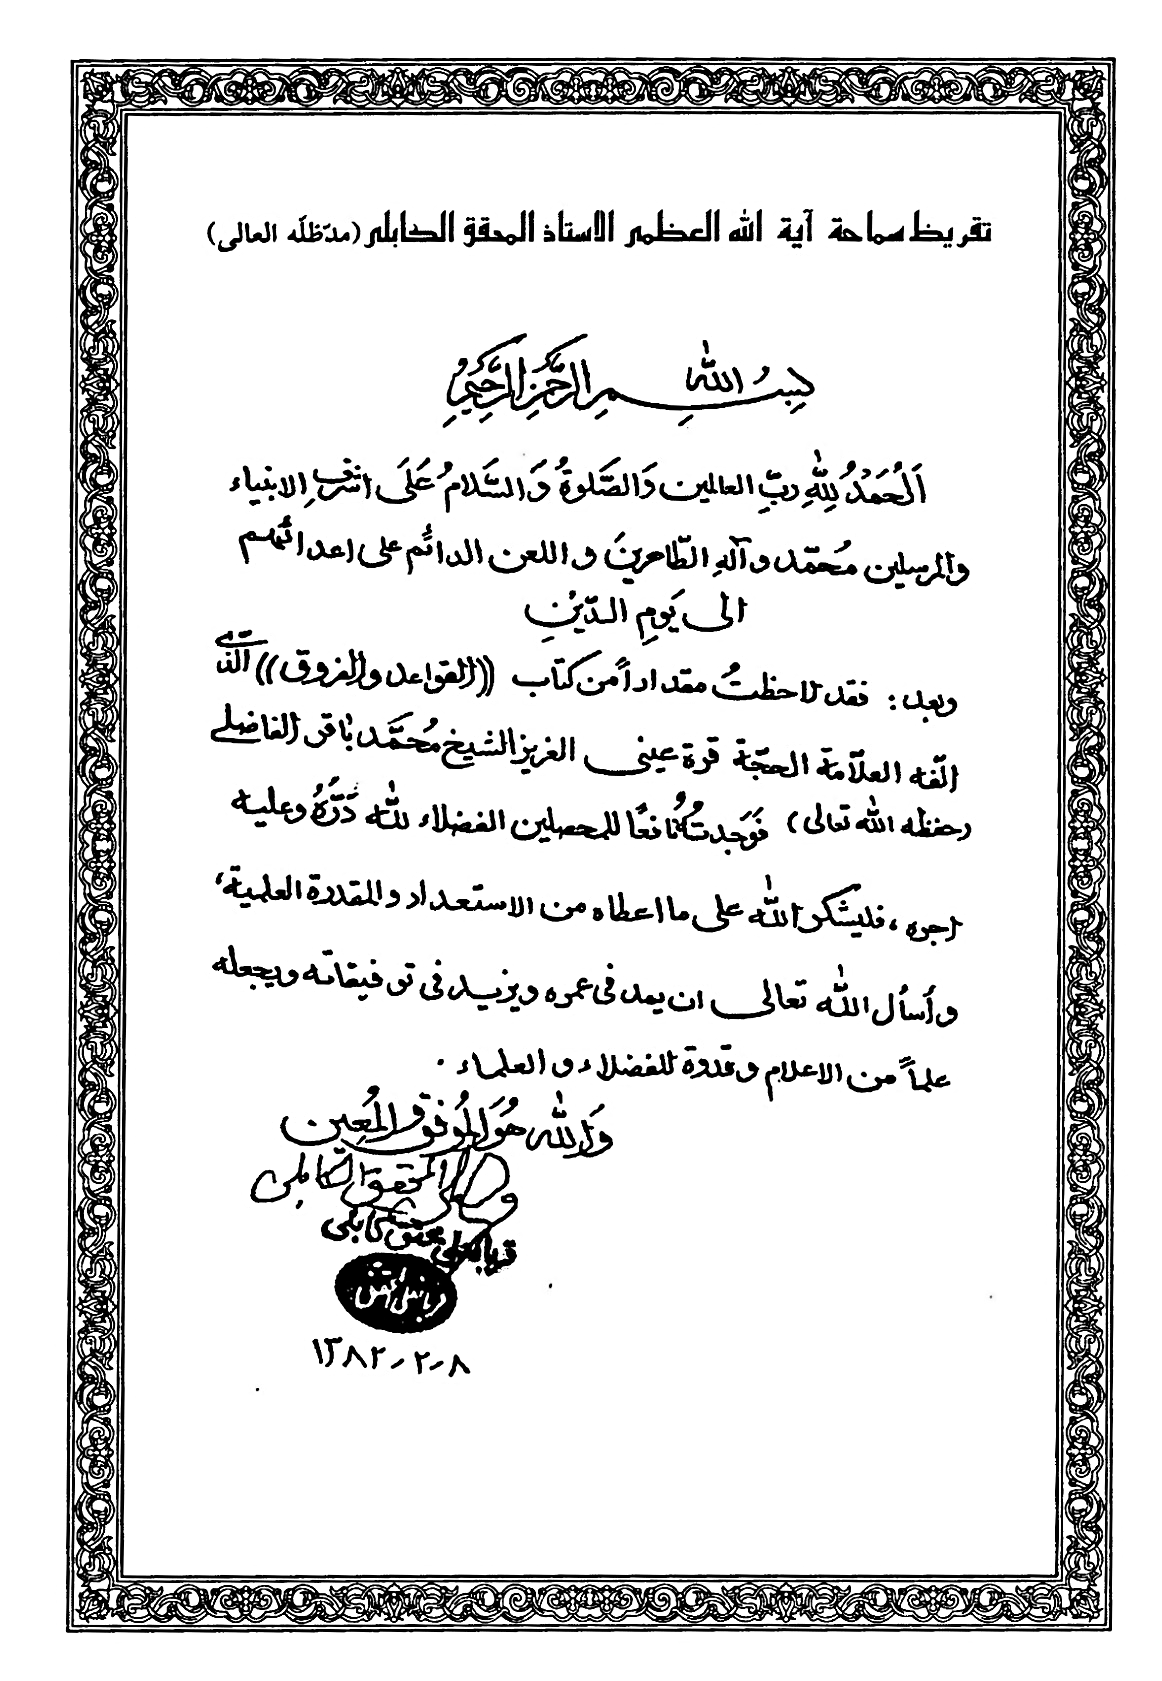 تقريظ سماحة آية الله العظمى الاستاذ المحقق الكابلي (مدّظلّه العالى)
بسم الله الرحمن الرحيم
اَلحَمدُ لِلّٰهِ ربِّ العالمين وَالصَّلوةُ وَالسَّلامُ عَلَى اشرفِ الانبياء
والمرسلين مُحمّد وآلهِ الطّاهرينَ و اللعن الدائم على اعدائهم
الى يَومِ الدّينِ
وبعد: فقد لاحظتُ مقداراً من كتاب ((القواعد والفروق)) الذى
الّفه العلّامة الحجّة قرة عينى العزيز الشيخ مُحمَّد باقر الفاضلى
(حفظه الله تعالى) فَوَجدتُهُ نافعًا للمحصلين الفضلاء لله دَرُّهُ وعليه
اجره، فليشكر الله على ما اعطاه من الاستعداد والمقدرة العلمية،
وأسأل الله تعالى ان يمد فى عمره ويزيد فى توفيقاته ويجعله
علماً من الاعلام وقدوة للفضلاء و العلماء.
وَالله هُوَ المُوفق والمُعِين
المحقق الكابلى
قربانعلى محقق كابلى
قربانعلى المحقق
١٣٨٢-٢-٨